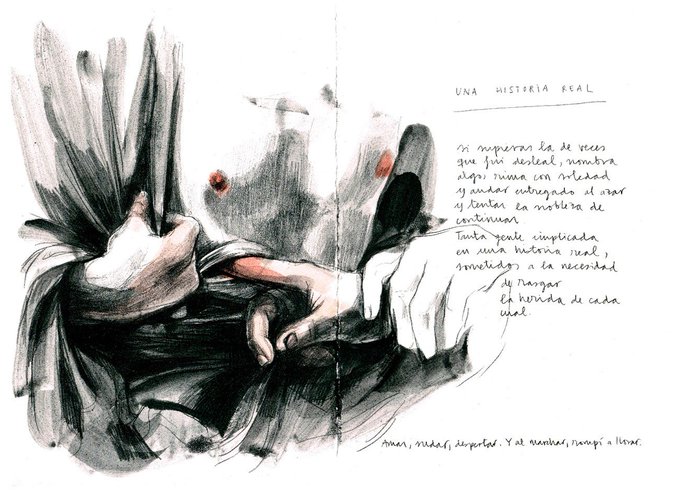 UNA HISTORIA REAL
si supieras la de veces
que fui desleal, nombra
algo, rima con soledad
y andar entregado al azar
y tentar la nobleza de
continuar
Tanta gente implicada
en una historia real,
sometidos a la necesidad
de rasgar
la herida de cada
cual.
Amar, sudar, despertar. Y al marchar, rompí a llorar.